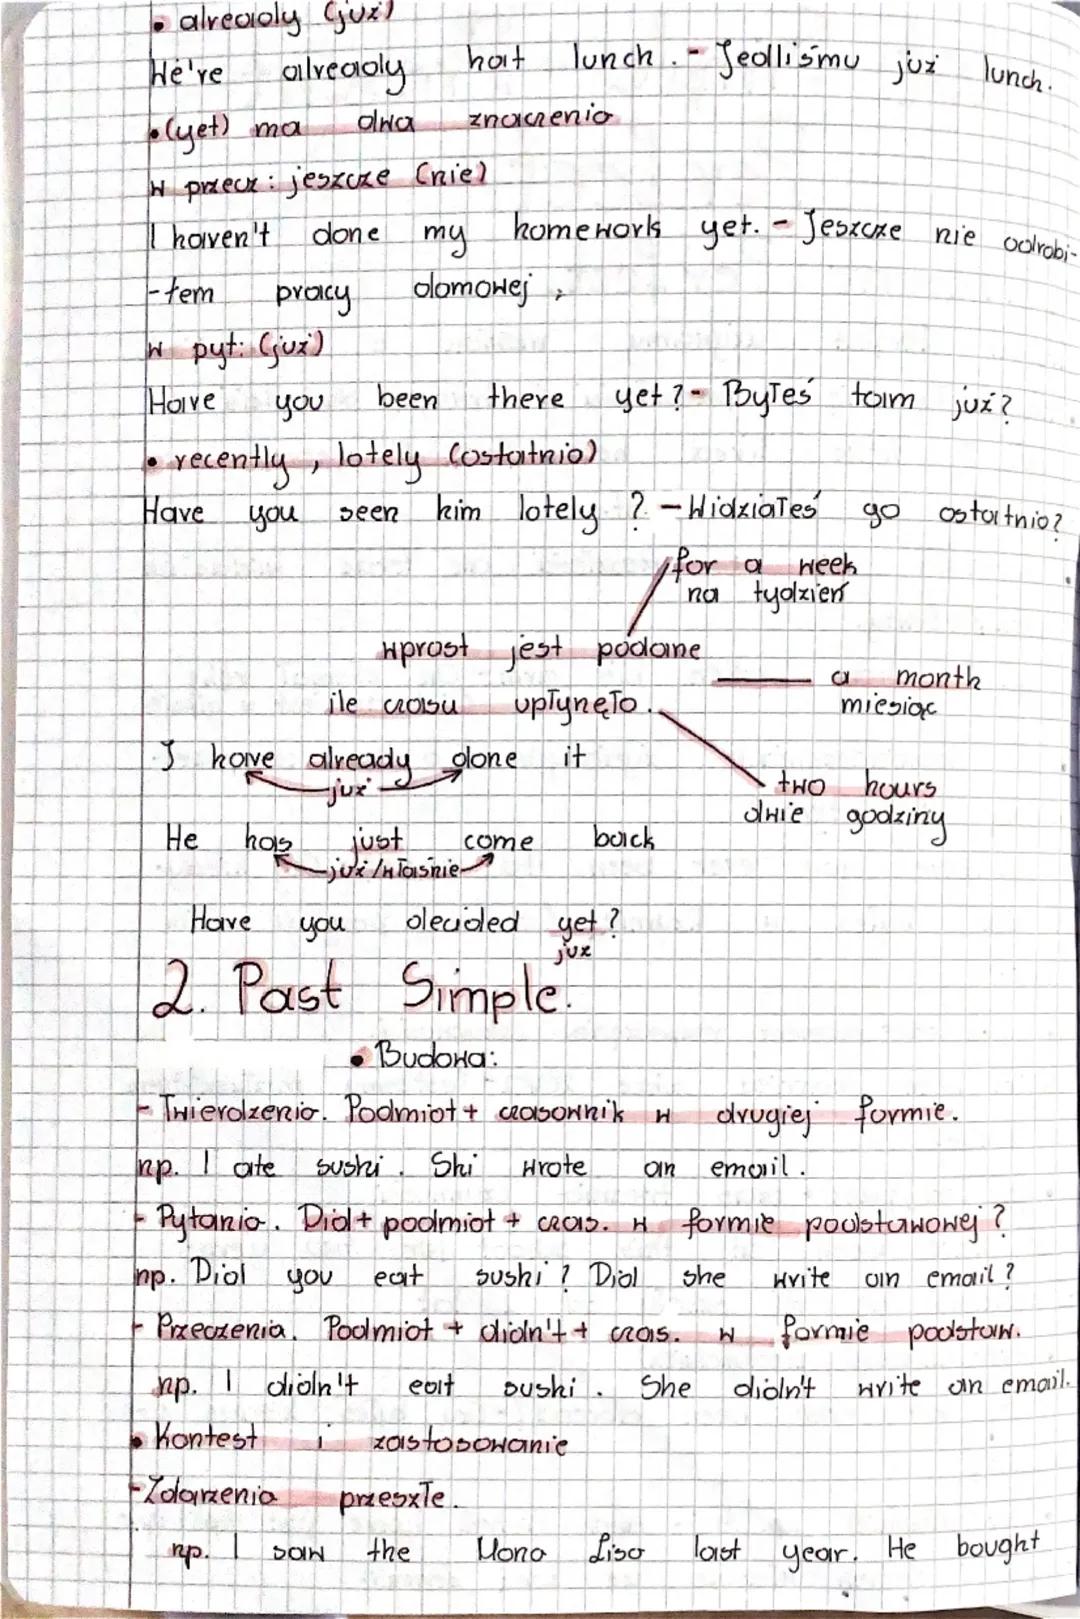 • already (już)
He're already hait lunch. - Jedliśmu już lunch.
• (yet) ma dwa znaczenia
w przecz: jeszcze (nie)
I haven't done my homework yet. - Jeszcze nie odrobi-
-łem pracy domowej,
w pyt: (już)
Have you been there yet? - Byłeś tam już?
• recently, lately (ostatnio)
Have you seen him lately? - Widziałeś go ostatnio?
for a week
na tydzień
wprost jest podane
a month
ile czasu upłynęło.
miesiąc
I have already done it
już
two hours
dwie godziny
He has just come back
już/właśnie
Have you decided yet?
już
2. Past Simple.
• Budowa:
- Twierdzenia. Podmiot + czasownik w drugiej formie.
np. I ate sushi. Shi wrote an email.
- Pytania. Did + podmiot + czas. w formie podstawowej?
np. Did you eat sushi? Did she write an email?
- Przeczenia. Podmiot + didn't + czas. w formie podstaw.
np. I didn't eat sushi. She didn't write an email.
• Kontest i zastosowanie
- Zdarzenia przeszłe.
np. I saw the Mona Lisa last year. He bought